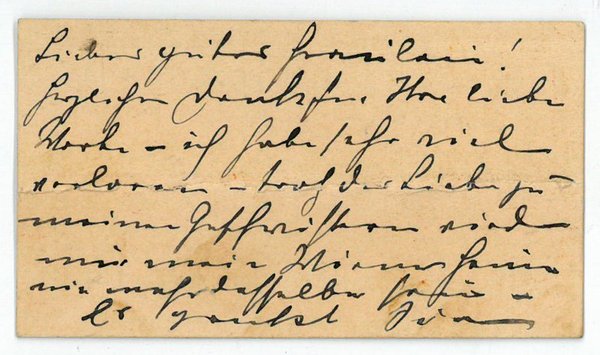 Liebes gutes Fräulein!
Herzlichen Dank für Ihre liebe
Worte – ich habe sehr viel
verloren – trotz der Liebe zu
meinen Geschwistern wird
mir mein Wiener Heim
nie mehr dasselbe sein –
Es grüßt Sie